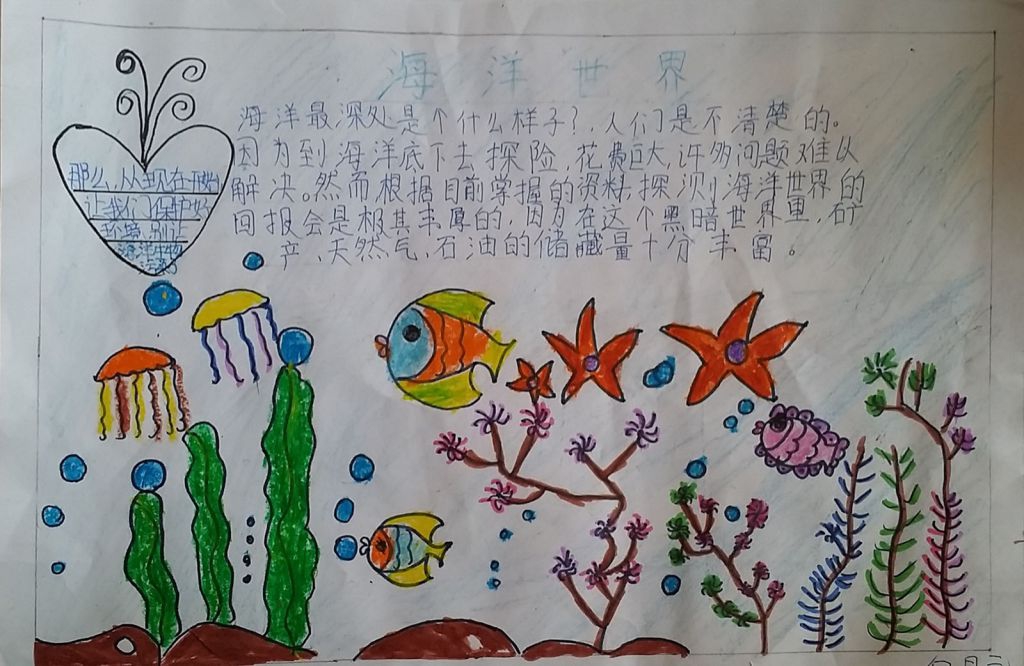 海洋世界
海洋最深处是个什么样子?,人们是不清楚的。
因为到海洋底下去探险,花费巨大,许多问题难以
解决。然而根据目前掌握的资料,探测海洋世界的
回报会是极其丰厚的,因为在这个黑暗世界里,矿
产、天然气、石油的储藏量十分丰富。
那么,从现在开始
让我们保护好
环境,别让
海洋生物